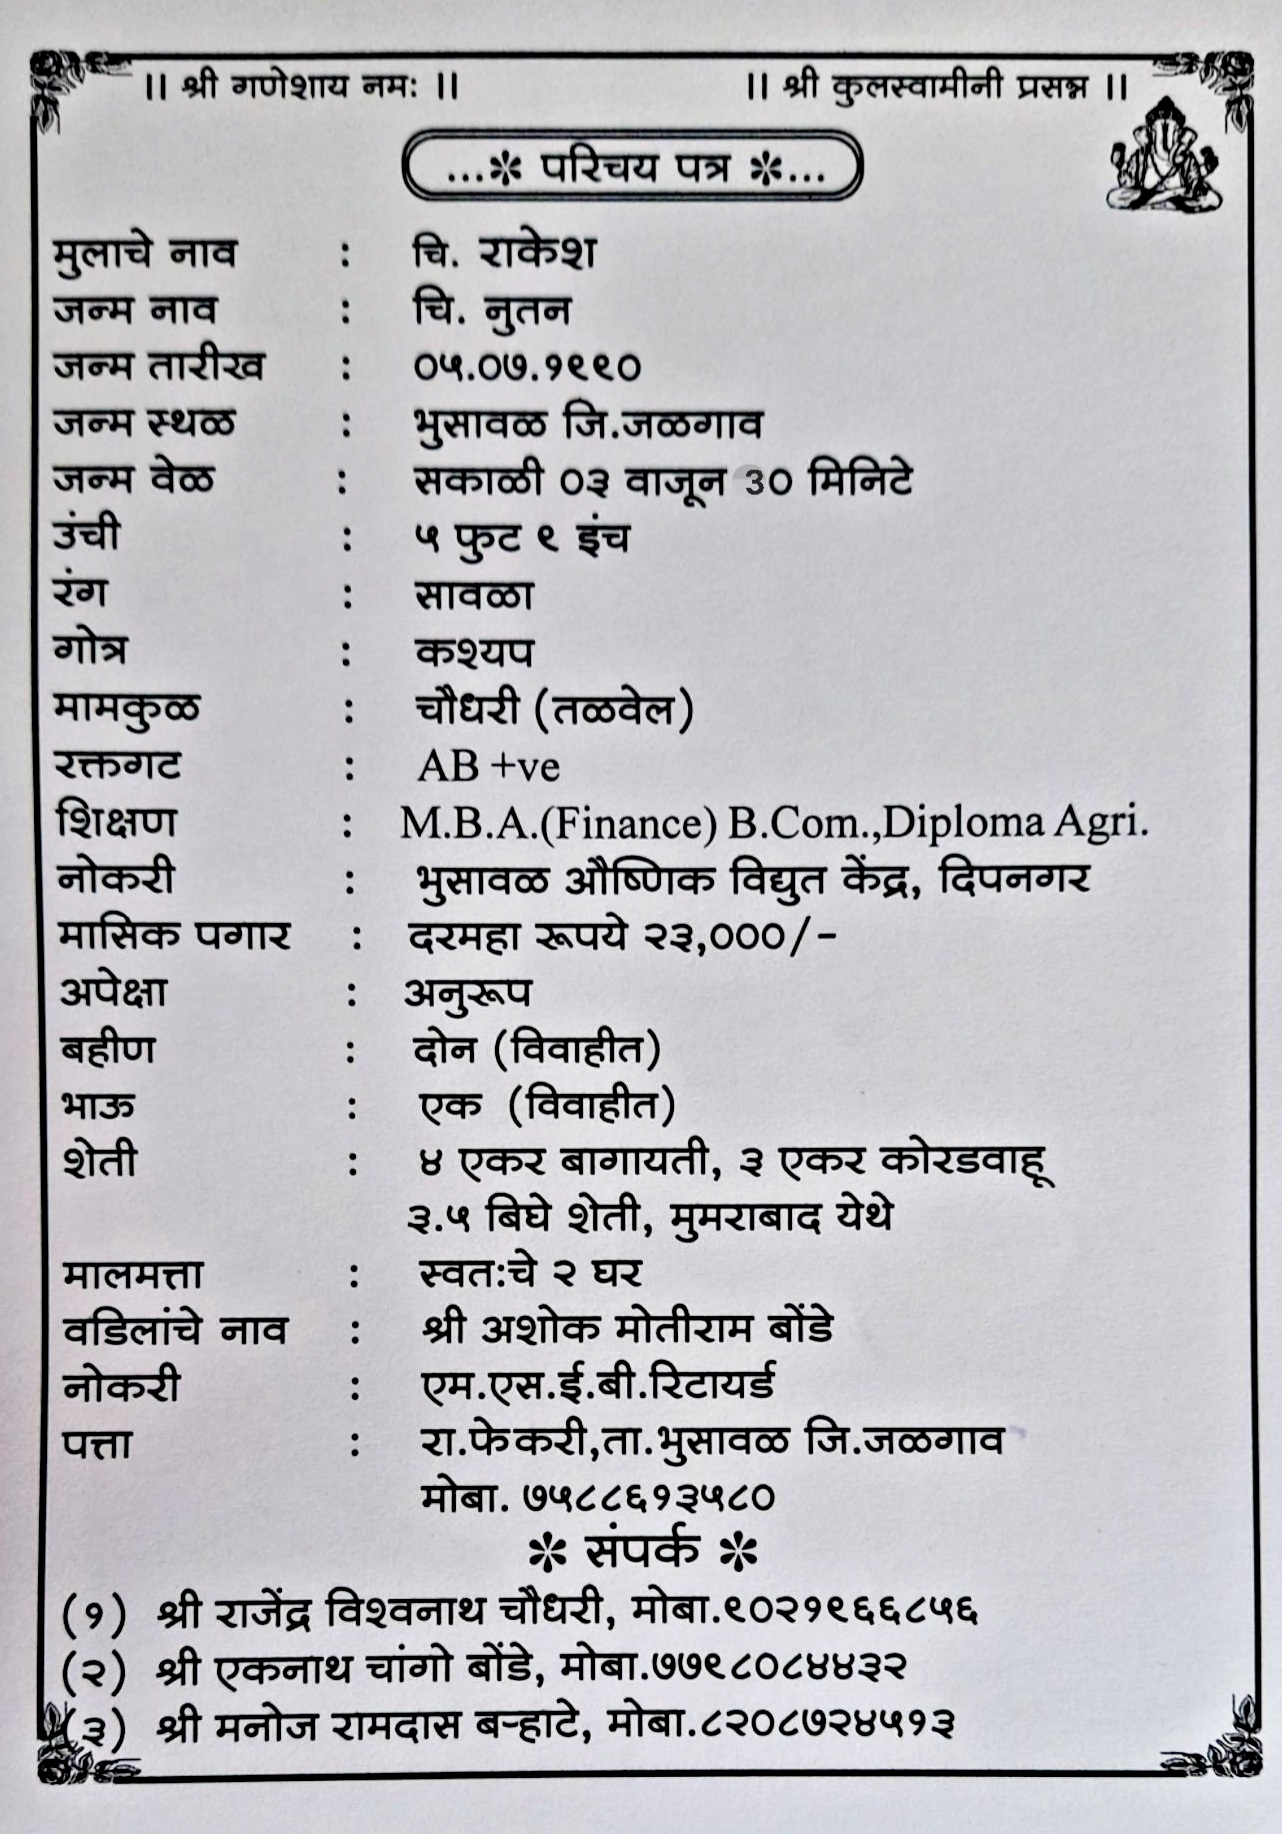 || श्री गणेशाय नमः ||
|| श्री कुलस्वामीनी प्रसन्न ||
...✻ परिचय पत्र ✻...
मुलाचे नाव : चि. राकेश
जन्म नाव : चि. नुतन
जन्म तारीख : ०५.०७.१९९०
जन्म स्थळ : भुसावळ जि.जळगाव
जन्म वेळ : सकाळी ०३ वाजून 3० मिनिटे
उंची : ५ फुट ९ इंच
रंग : सावळा
गोत्र : कश्यप
मामकुळ : चौधरी (तळवेल)
रक्तगट : AB +ve
शिक्षण : M.B.A.(Finance) B.Com.,Diploma Agri.
नोकरी : भुसावळ औष्णिक विद्युत केंद्र, दिपनगर
मासिक पगार : दरमहा रूपये २३,०००/-
अपेक्षा : अनुरूप
बहीण : दोन (विवाहीत)
भाऊ : एक (विवाहीत)
शेती : ४ एकर बागायती, ३ एकर कोरडवाहू
३.५ बिघे शेती, मुमराबाद येथे
मालमत्ता : स्वतःचे २ घर
वडिलांचे नाव : श्री अशोक मोतीराम बोंडे
नोकरी : एम.एस.ई.बी.रिटायर्ड
पत्ता : रा.फेकरी,ता.भुसावळ जि.जळगाव
मोबा. ७५८८६१३५८०
✻ संपर्क ✻
(१) श्री राजेंद्र विश्वनाथ चौधरी, मोबा.९०२१९६६८५६
(२) श्री एकनाथ चांगो बोंडे, मोबा.७७९८०८४४३२
(३) श्री मनोज रामदास बऱ्हाटे, मोबा.८२०८७२४५१३